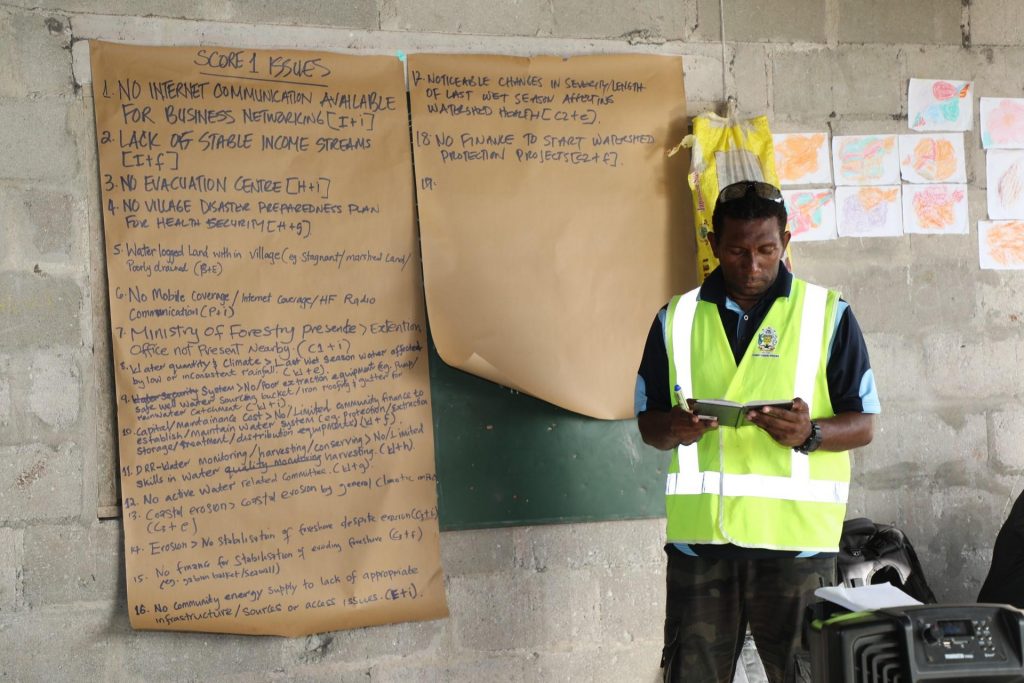 SCORE 1 ISSUES
1. NO INTERNET COMMUNICATION AVAILABLE
FOR BUSINESS NETWORKING [I+i]
2. LACK OF STABLE INCOME STREAMS
[I+f]
3. NO EVACUATION CENTRE [H+i]
4. NO VILLAGE DISASTER PREPAREDNESS PLAN
FOR HEALTH SECURITY [H+g]
5. Water logged Land within village (eg Stagnant/marshed Land/
Poorly drained (B+E)
6. No Mobile Coverage/Internet Coverage/HF Radio
Communication (P+i)
7. Ministry of Forestry presence > Extention
Office not Present Nearby. (C1+i)
8. Water quantity & Climate > Last wet season water affected
by low or inconsistent rainfall. (W+e).
9. Water Security System > No/Poor extraction equipment (eg. Pump/
safe well water sourcing bucket/iron roofing & gutter for
rainwater catchment (W+i)
10. Capital/Maintainance Cost > No/Limited community finance to
establish/maintain water system (eg. Protection/Extraction
storage/treatment/distribution equipments) (W+f)
11. DRR-Water monitoring/harvesting/conserving > No/Limited
skills in water quality monitoring harvesting. (W+h).
12. No active Water related Committee. (W+g).
13. Coastal erosion > coastal erosion by general climatic
(C3+e)
14. Erosion > No stabilisation of foreshore despite erosion (C3+i)
15. No finance for stabilisation of eroding foreshore (C3+f)
(eg. gabion basket/seawall)
16. No community energy supply to lack of appropriate
infrastructure/sources or access issues. (E+i).
17. NOTICEABLE CHANGES IN SEVERITY/LENGTH
OF LAST WET SEASON AFFECTING
WATERSHED HEALTH (C2+e).
18. NO FINANCE TO START WATERSHED
PROTECTION PROJECTS [C2+f].
19.